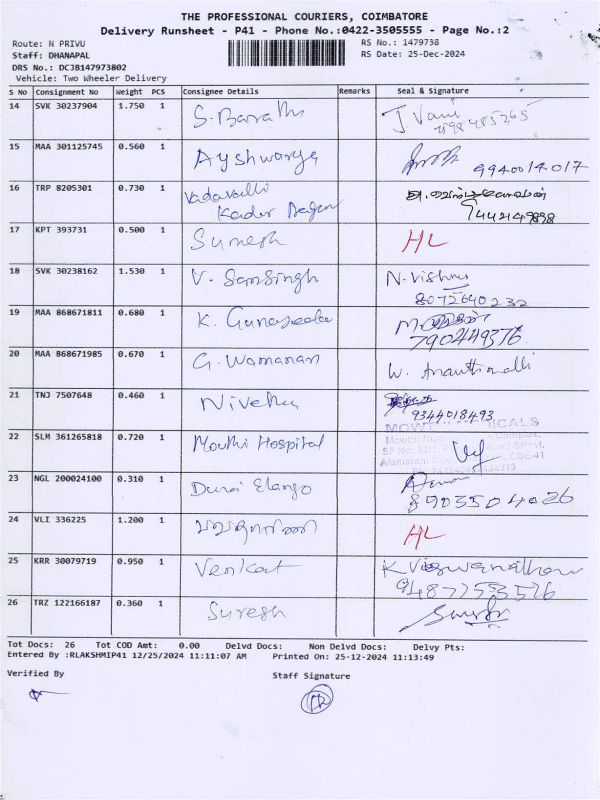 THE PROFESSIONAL COURIERS, COIMBATORE
Delivery Runsheet - P41 - Phone No.:0422-3505555 - Page No.:2
Route: N PRIVU RS No.: 1479738
Staff: DHANAPAL RS Date: 25-Dec-2024
DRS No.: DCJB147973802
Vehicle: Two Wheeler Delivery
S No Consignment No Weight PCS Consignee Details Remarks Seal & Signature
14 SVK 30237904 1.750 1 S. Barathi J. Vani
15 MAA 301125745 0.560 1 Ayshwarya 9940014017
16 TRP 8205301 0.730 1 Vadavalli
7442149898
17 KPT 393731 0.500 1 Sumesh HL
18 SVK 30238162 1.530 1 V. SamSingh N. Vishnu
8072640232
19 MAA 868671811 0.680 1 K. Gunaseela
7904449376
20 MAA 868671985 0.670 1 G. Wamanan W. Ananthavalli
21 TNJ 7507648 0.460 1 Nivetha
9344018493
22 SLM 361265818 0.720 1 Mowthi Hospital
23 NGL 200024100 0.310 1 Durai Elango
8903504026
24 VLI 336225 1.200 1 HL
25 KRR 30079719 0.950 1 Venkat K Viswanathan
9487753526
26 TRZ 122166187 0.360 1 Suresh
Tot Docs: 26 Tot COD Amt: 0.00 Delvd Docs: Non Delvd Docs: Delvy Pts:
Entered By :RLAKSHMIP41 12/25/2024 11:11:07 AM Printed On: 25-12-2024 11:13:49
Verified By Staff Signature